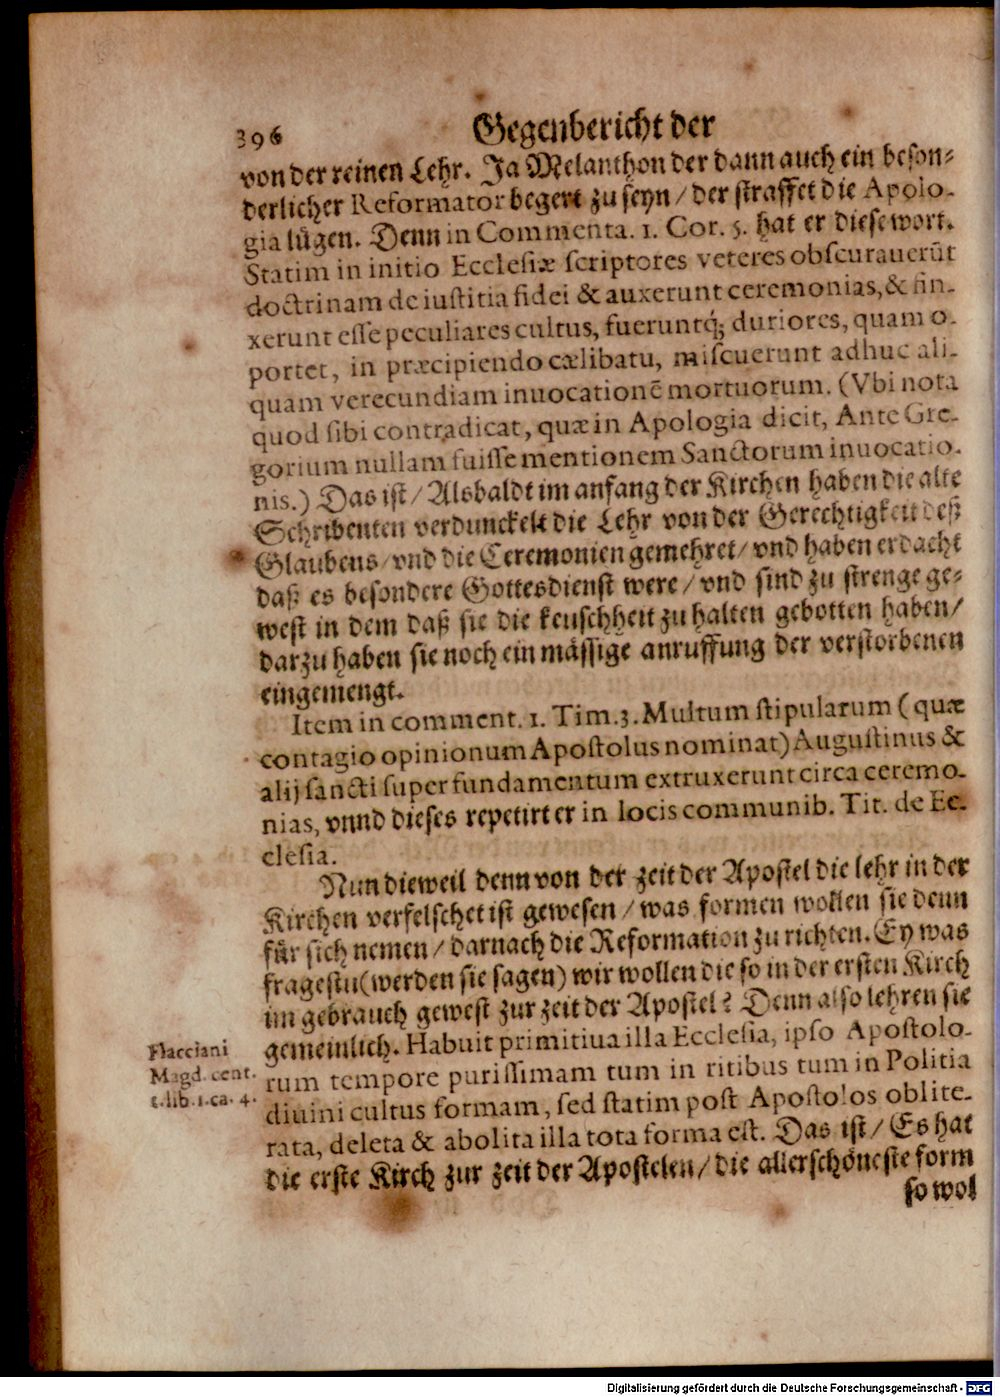 396 Gegenbericht der
von der reinen Lehr. Ja Melanthon der dann auch ein beson-
derlicher Reformator begert zu seyn / der straffet die Apolo-
gia lügen. Denn in Commenta. 1. Cor. 5. hat er diese wort.
Statim in initio Ecclesiæ scriptores veteres obscurauerũt
doctrinam de iustitia fidei & auxerunt ceremonias, & fin-
xerunt esse peculiares cultus, fueruntq́; duriores, quam o-
portet, in præcipiendo cælibatu, miscuerunt adhuc ali-
quam verecundiam inuocationẽ mortuorum. (Vbi nota
quod sibi contradicat, quæ in Apologia dicit, Ante Gre-
gorium nullam fuisse mentionem Sanctorum inuocatio-
nis.) Das ist / Alsbaldt im anfang der Kirchen haben die alte
Schribenten verdunckelt die Lehr von der Gerechtigkeit deß
Glaubens / vnd die Ceremonien gemehret / vnd haben erdacht
daß es besondere Gottesdienst were / vnd sind zu strenge ge-
west in dem daß sie die keuschheit zu halten gebotten haben /
darzu haben sie noch ein mässige anruffung der verstorbenen
eingemengt.
Item in comment. 1. Tim. 3. Multum stipularum (quæ
contagio opinionum Apostolus nominat) Augustinus &
alij sancti super fundamentum extruxerunt circa ceremo-
nias, vnnd dieses repetirt er in locis communib. Tit. de Ec-
clesia.
Nun dieweil denn von der zeit der Apostel die lehr in der
Kirchen verfelschet ist gewesen / was formen wollen sie denn
für sich nemen / darnach die Reformation zu richten. Ey was
fragestu (werden sie sagen) wir wollen die so in der ersten Kirch
im gebrauch gewest zur zeit der Apostel? Denn also lehren sie
gemeinlich. Habuit primitiua illa Ecclesia, ipso Apostolo-
rum tempore purissimam tum in ritibus tum in Politia
diuini cultus formam, sed statim post Apostolos oblite-
rata, deleta & abolita illa tota forma est. Das ist / Es hat
die erste Kirch zur zeit der Apostelen / die allerschöneste form
so wol
Flacciani
Magd. cent.
1. lib. 1. ca. 4.
Digitalisierung gefördert durch die Deutsche Forschungsgemeinschaft - DFG